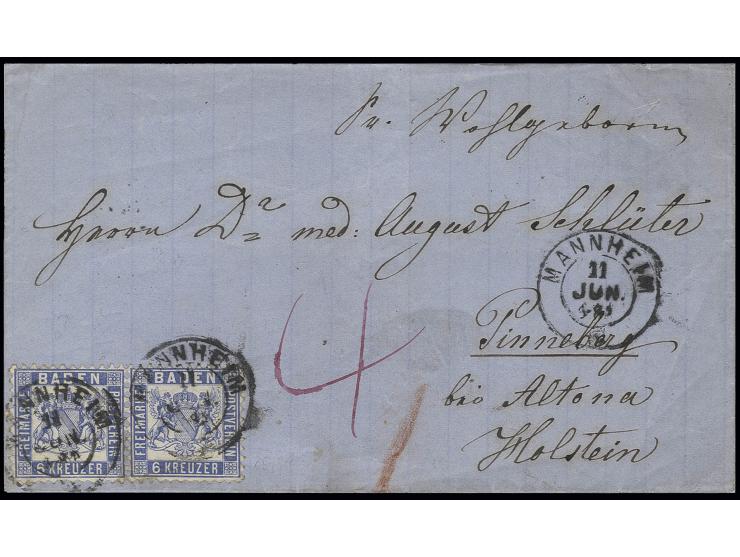 Sr. Wohlgeborn
Herrn Dr med: August Schlüter
MANNHEIM
11
JUN.
4
Pinneberg
bei Altona
Holstein
MANNHEIM
11
BADEN
FREIMARKE
6 KREUZER
MANNHEIM
11
BADEN
FREIMARKE
POSTVEREIN
6 KREUZER